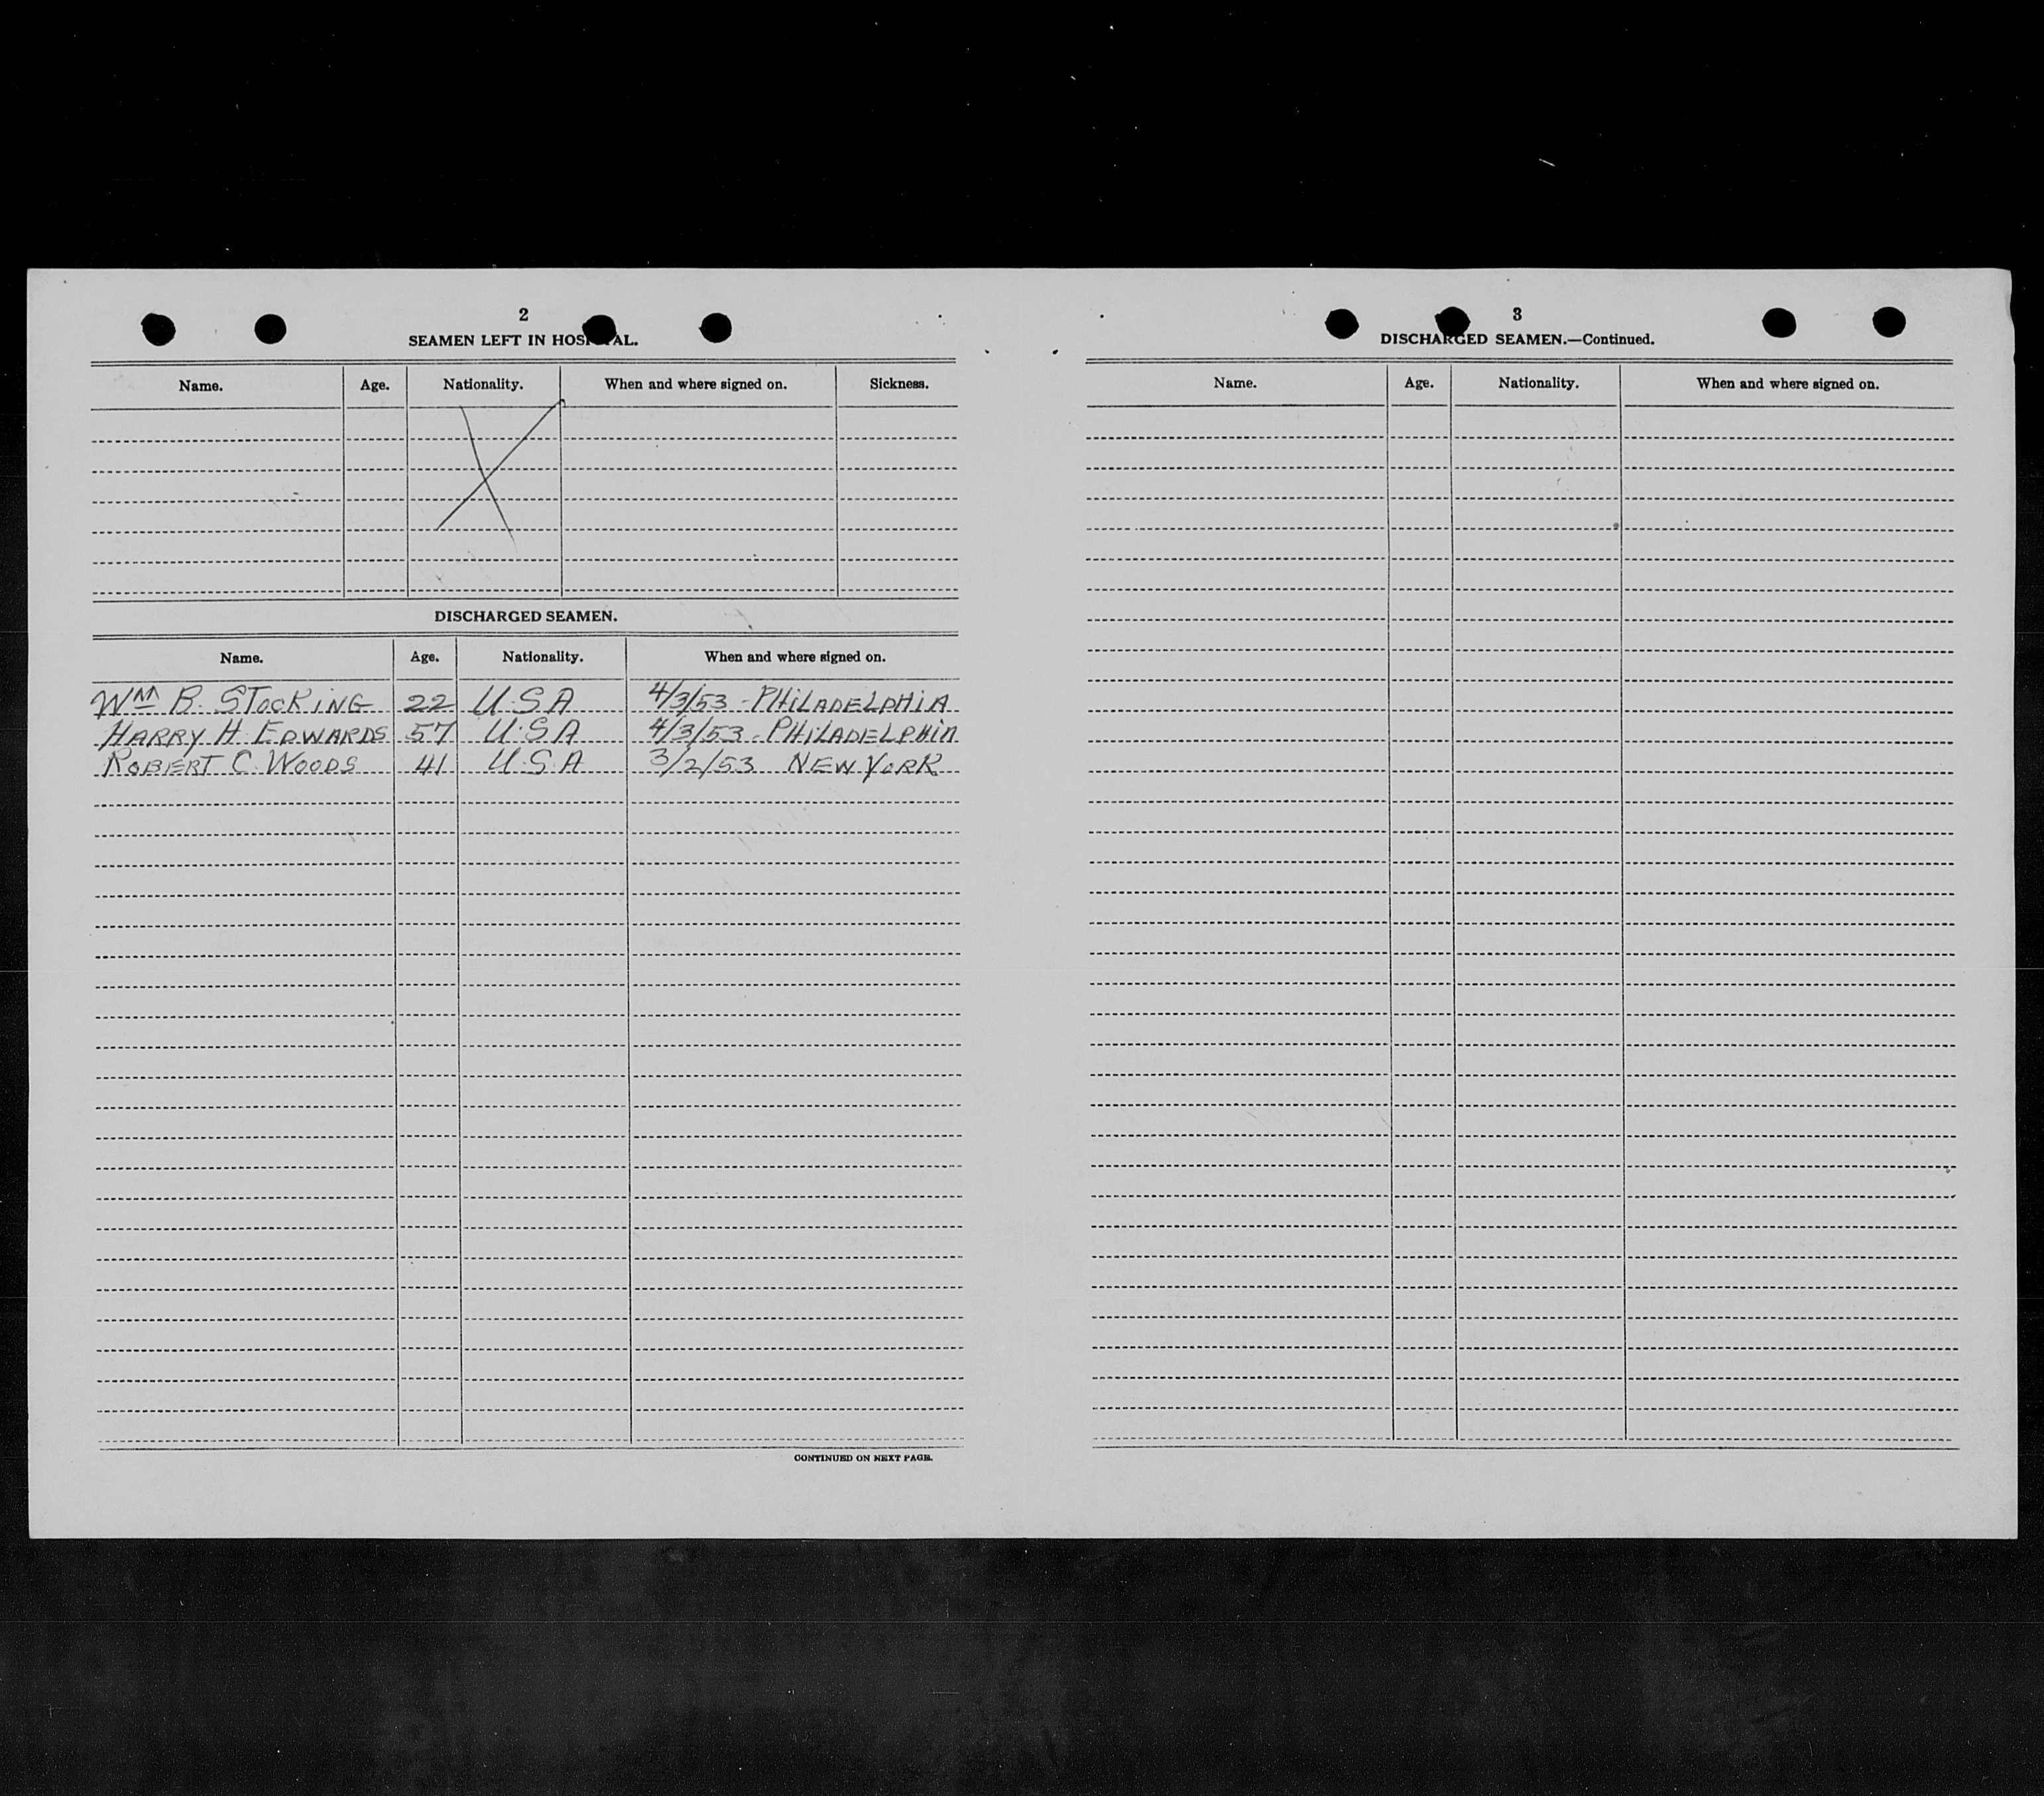 2
SEAMEN LEFT IN HOSPITAL.
Name. Age. Nationality. When and where signed on. Sickness.
DISCHARGED SEAMEN.
Name. Age. Nationality. When and where signed on.
WM B. STOCKING 22 U.S.A 4/3/53 - PHILADELPHIA
HARRY H EDWARDS 57 U.S.A 4/3/53 - PHILADELPHIA
ROBERT C. WOODS 41 U.S.A 3/2/53 NEW YORK
CONTINUED ON NEXT PAGE.
3
DISCHARGED SEAMEN.—Continued.
Name. Age. Nationality. When and where signed on.